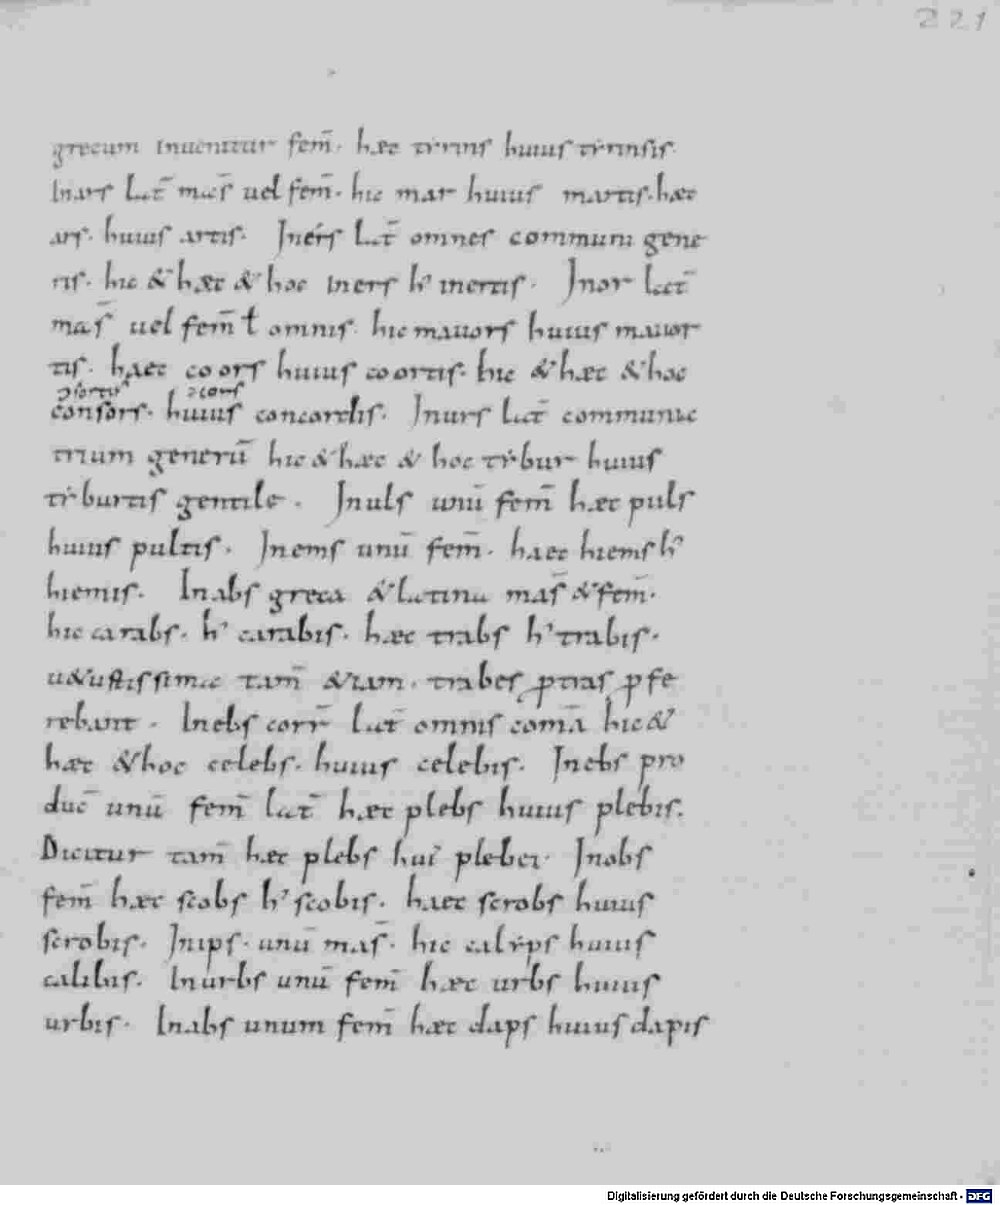 221
grecum inuenitur fem̄. hæc tirins huius tirinsis.
In ars Lat̄ mas̄ uel fem̄. hic mar huius martis. hæc
ars. huius artis. In ers Lat̄ omnes communi gene
ris. hic & hæc & hoc iners h' inertis. In or Lat̄
mas̄ uel fem̄ ł omnis. hic mauors huius mauor
tis. haec coors huius coortis. hic & hæc & hoc
ɔsortis ɔcors
consors. huius concordis. In urs Lat̄ communia
trium generū hic & hæc & hoc tẏbur huius
tẏburtis gentile. In uls unū fem̄ hæc puls
huius pultis. In ems unū fem̄. haec hiems h'
hiemis. In abs greca & latina mas̄ & fem̄.
hic carabs. h' carabis. hæc trabs h' trabis.
u&ustissimae tam̄ &iam. trabes ꝓ tras ꝓfe
rebant. In ebs corr̄ Lat̄ omnis comā hic &
hæc & hoc celebs. huius celebis. In ebs pro
duc̄ unū fem̄ lat̄ hæc plebs huius plebis.
Dicitur tam̄ hæc plebs hui' plebei. In obs
fem̄ hæc scobs h' scobis. haec scrobs huius
scrobis. In ips. unū mas̄. hic calẏps huius
calibis. In urbs unū fem̄ hæc urbs huius
urbis. In abs unum fem̄ hæc daps huius dapis
Digitalisierung gefördert durch die Deutsche Forschungsgemeinschaft - DFG